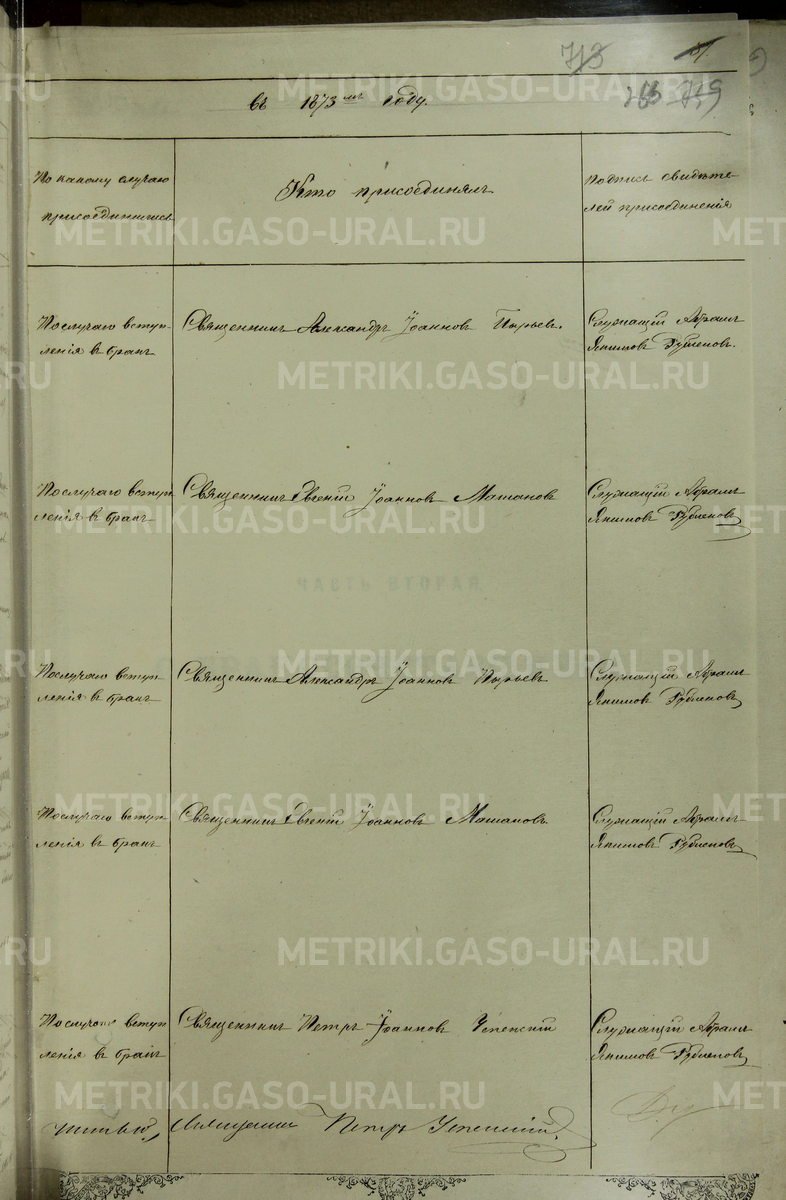 713
въ 1873мъ году.
По какому случаю присоединились
Кто присоединялъ
Подпись свидѣтелей присоединенія
По случаю вступленія въ бракъ
Священникъ Александръ Іоанновъ Пырьевъ.
Служащій Абрамъ Якимовъ
По случаю вступленія въ бракъ
Священникъ Евгеній Іоанновъ
Служащій Абрамъ Якимовъ
ЧАСТЬ ВТОРАЯ
По случаю вступленія въ бракъ
Священникъ Александръ Іоанновъ Пырьевъ
Служащій Абрамъ Якимовъ
По случаю вступленія въ бракъ
Священникъ Евгеній Іоанновъ
Служащій Абрамъ Якимовъ
По случаю вступленія въ бракъ
Священникъ Петръ Іоанновъ Успенскій
Служащій Абрамъ Якимовъ
Священникъ Петръ Успенскій.
METRIKI.GASO-URAL.RU